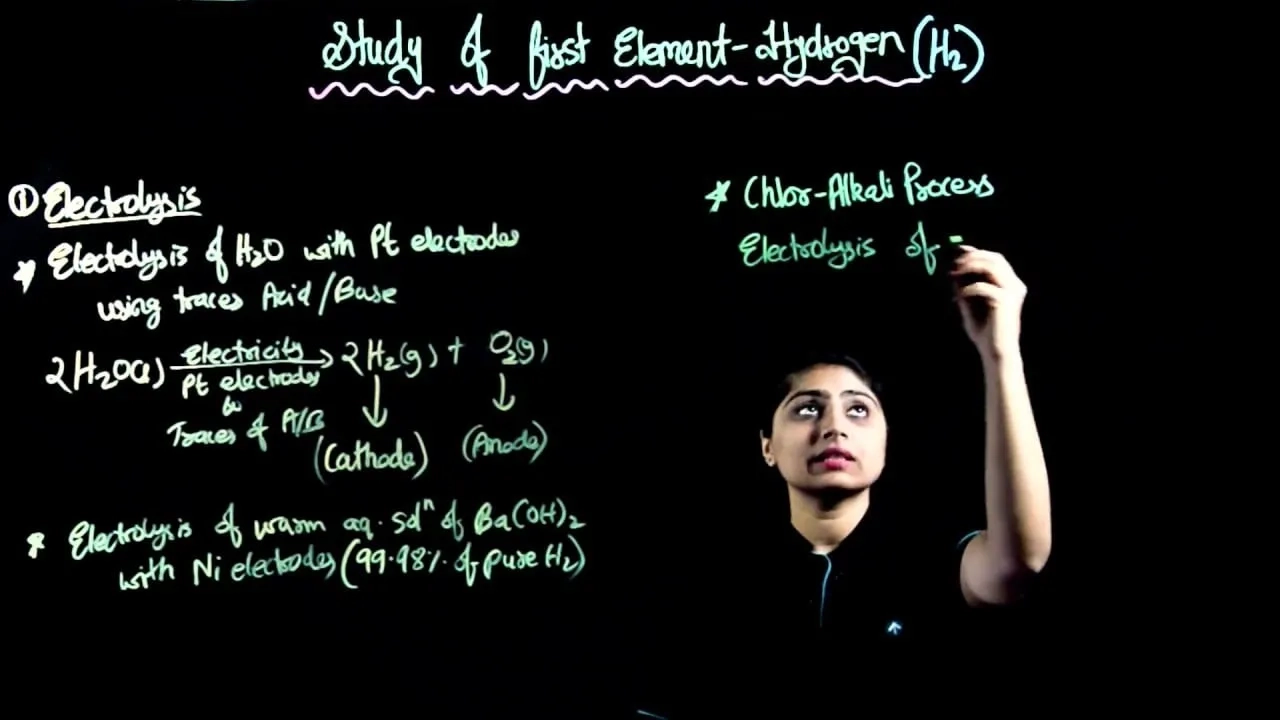 Study of first Element-Hydrogen (H₂)
① Electrolysis
* Electrolysis of H₂O with Pt electrodes
using traces Acid/Base
2H₂O(l) → 2H₂(g) + O₂(g)
Electricity
Pt electrodes
Traces of A/B
(Cathode) (Anode)
* Electrolysis of warm aq. solⁿ of Ba(OH)₂
with Ni electrodes (99.98% of pure H₂)
* Chlor-Alkali Process
Electrolysis of